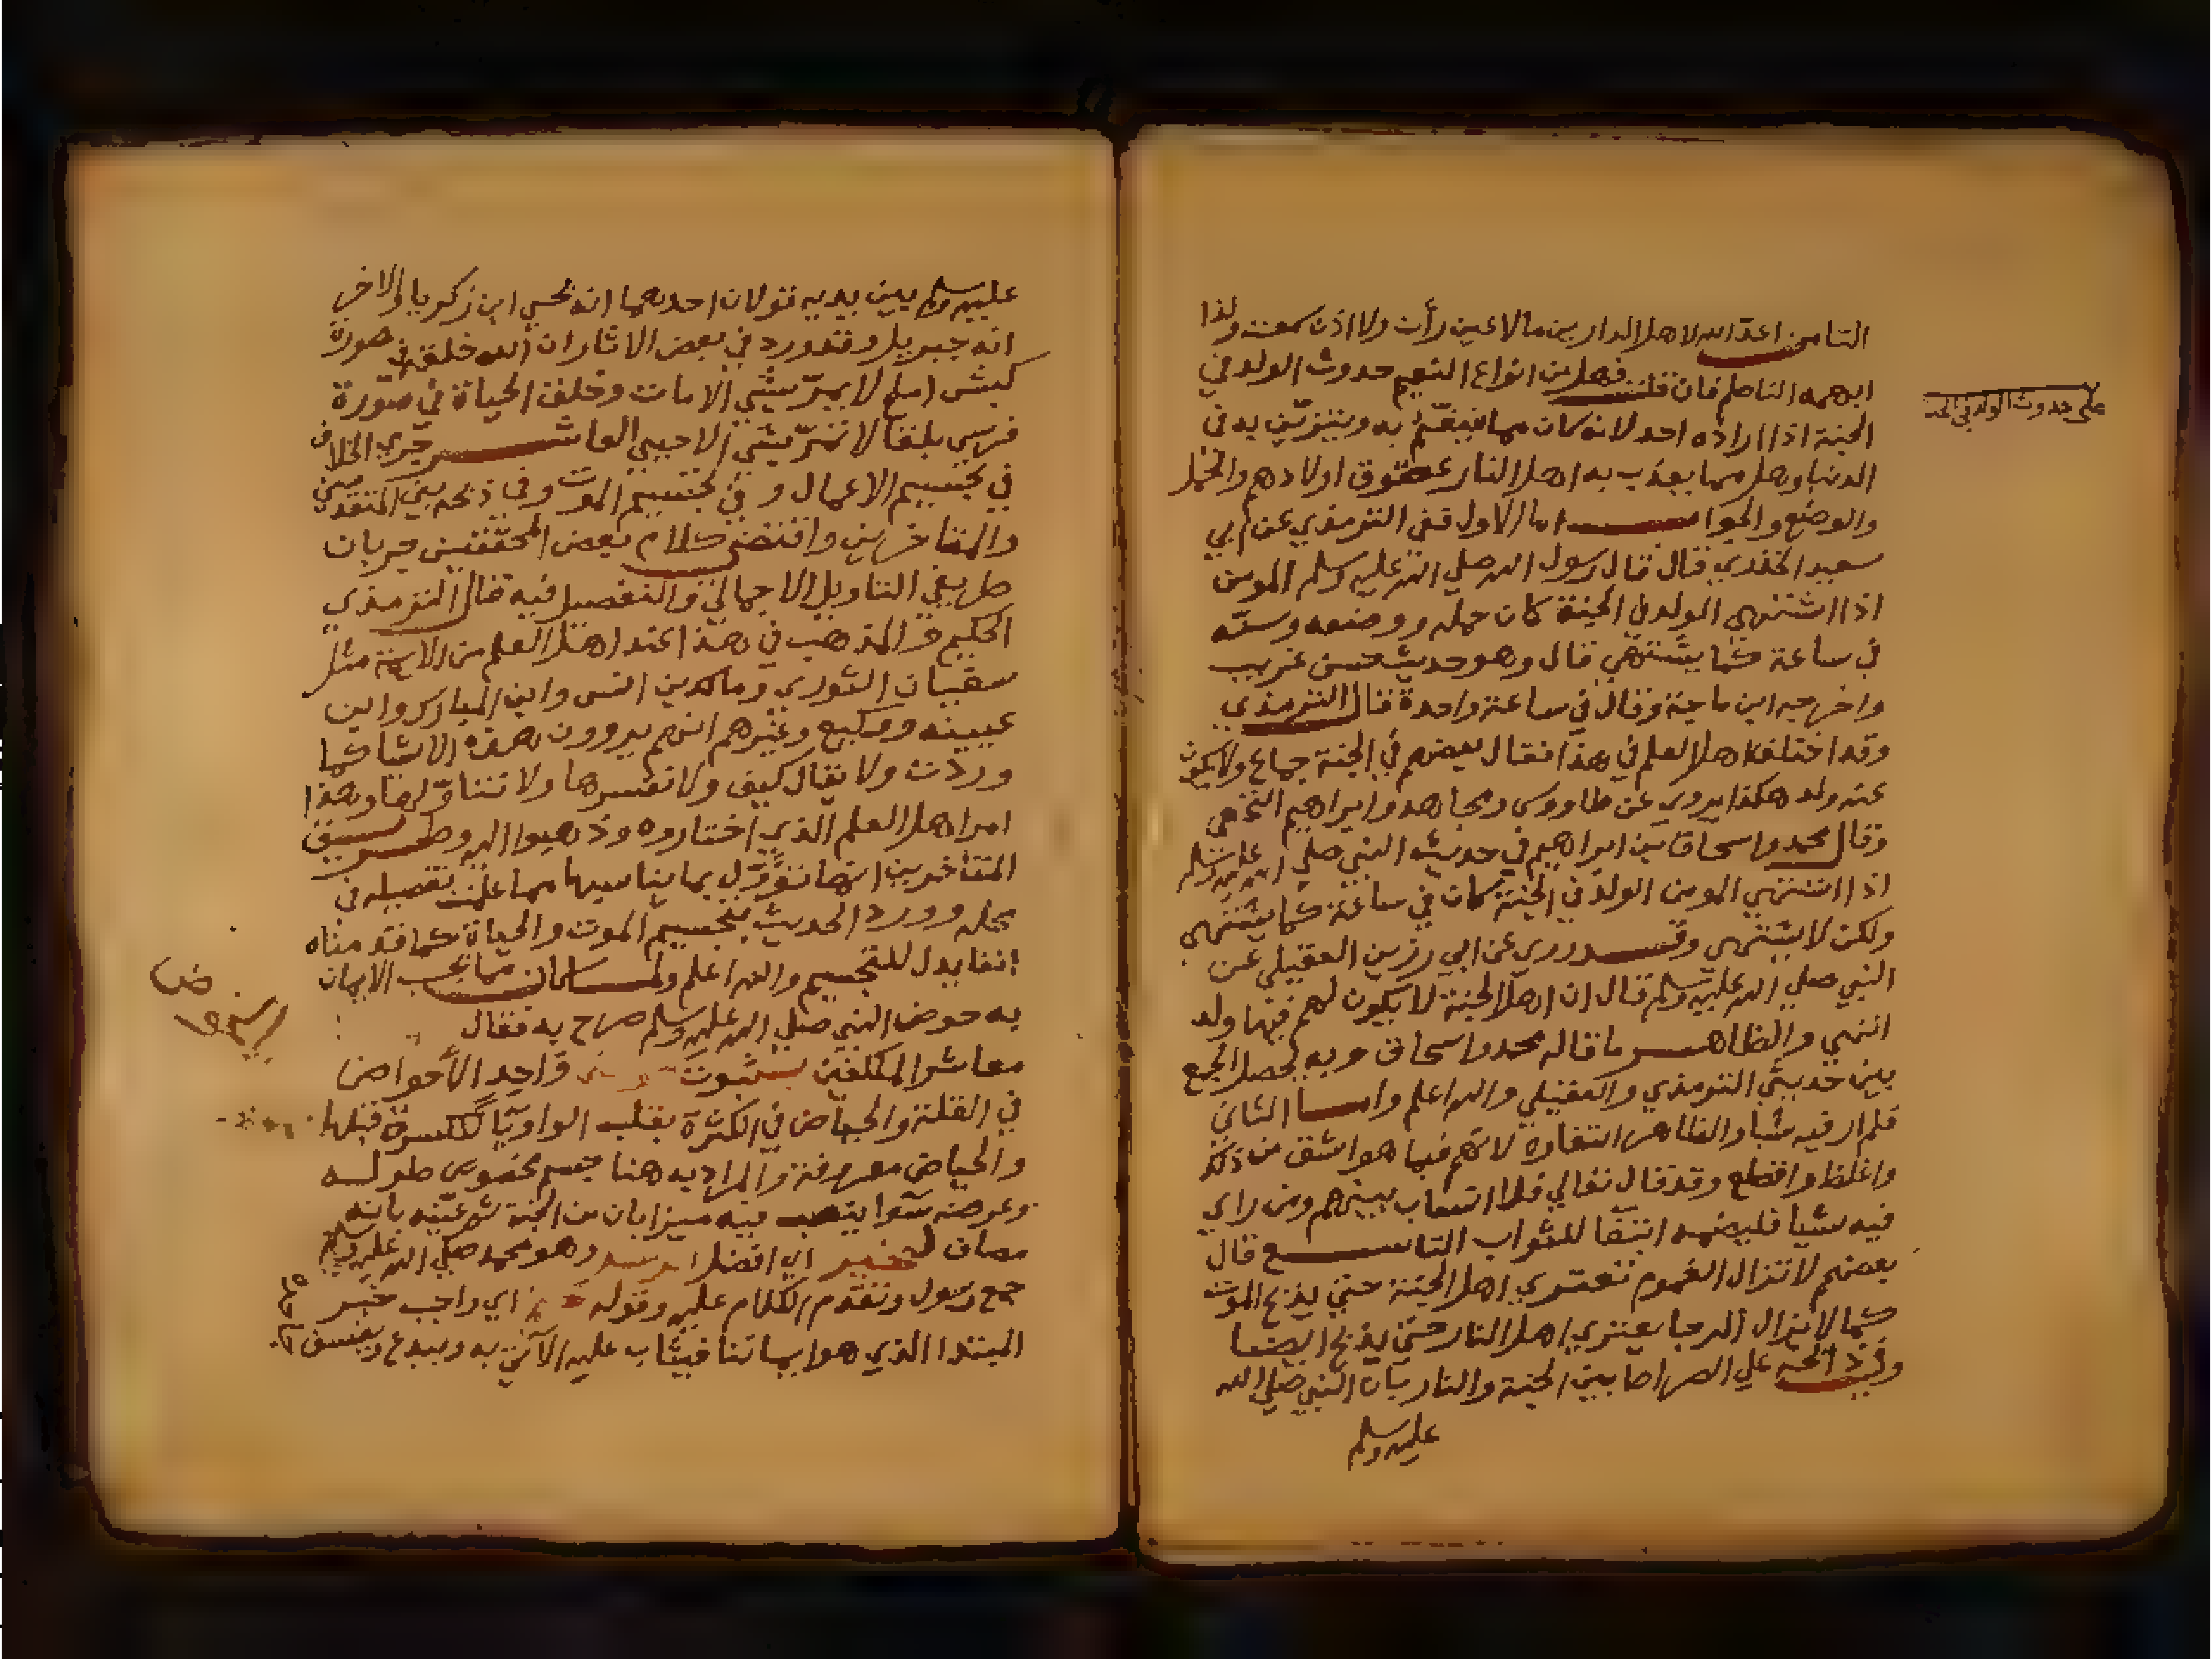 الثامن اعدّ الله لاهل الدارين ما لا عين رأت ولا اذن سمعت ولذا
ابهمه الناظم فان قلت فهل من انواع النعيم حدوث الولد في
الجنة اذا اراده احد لانه كان مما يتنعّم به ويتزيّن به في
الدنيا وهل مما يعذب به اهل النار عقوق اولادهم والحمل
والوضع والجواب اما الاول ففي الترمذي عن ابي
سعيد الخدري قال قال رسول الله صلي الله عليه وسلم المومن
اذا اشتهي الولد في الجنة كان حمله ووضعه وسنّه
في ساعة كما يشتهي قال وهو حديث حسن غريب
واخرجه ابن ماجة وقال في ساعة واحدة قال الترمذي
وقد اختلف اهل العلم في هذا فقال بعضهم في الجنة جماع ولا يكون
عنه ولد هكذا يروي عن طاووس ومجاهد وابراهيم النخعي
وقال محمد واسحاق بن ابراهيم في حديث النبي صلي الله عليه وسلم
اذا اشتهي المومن الولد في الجنة كان في ساعة كما يشتهي
ولكن لا يشتهي وقد روي عن ابي رزين العقيلي عن
النبي صلي الله عليه وسلم قال ان اهل الجنة لا يكون لهم فيها ولد
انتهي والظاهر ما قاله محمد واسحاق وبه يحصل الجمع
بين حديثي الترمذي والعقيلي والله اعلم واما الثاني
فلم ار فيه شيا والظاهر انتفاوه لانهم فيما هو اشق من ذلك
واغلظ وافظع وقد قال تعالي فلا انساب بينهم ومن راي
فيه شيا فليضمه ابتغا للثواب التاسع قال
بعضهم لا تزال الغموم تعتري اهل الجنة حتي يذبح الموت
كما لا يزال الرجا يعتري اهل النار حتي يذبح ايضا
وذبحه علي الصراط بين الجنة والنار بان النبي صلي الله
عليه وسلم
علي حدوث الولد في الجنة
عليه وسلم بين يديه قولان احدهما انه يحيي ابن زكريا والاخر
انه جبريل وقد ورد في بعض الاثار ان الله خلقه في صورة
كبش املح لا يمرّ بشي الا مات وخلق الحياة في صورة
فرس بلقا لا تمرّ بشي الا حيي العاشر جري الخلاف
في تجسيم الاعمال وفي تجسيم الموت وفي ذبحه بين المتقدمين
والمتاخرين واقتضي كلام بعض المحققين جريان
طريقي التاويل الاجمالي والتفصيل فيه قال الترمذي
الحكيم والمذهب في هذا عند اهل العلم من الايمة مثل
سفيان الثوري ومالك بن انس وابن المبارك وابن
عيينه ووكيع وغيرهم انهم يروون هذه الاشيا كما
وردت ولا يقال كيف ولا نفسرها ولا نتاوّلها وهذا
امر اهل العلم الذي اختاروه وذهبوا اليه وطريق
المتاخرين انها تؤوّل بما يناسبها مما علمت تفصيله في
محله وورد الحديث بتجسيم الموت والحياة كما قدمناه
انفا يدل للتجسيم والله اعلم ولما كان مما يجب الايمان
به حوض النبي صلي الله عليه وسلم صرح به فقال
معاشر المكلفين بثبوت واحد الأحواض
في القلة والحياض في الكثرة بقلب الواو يآ لكسرة قبلها
والحياض معروفة والمراد به هنا جسم مخصوص طوله
وعرضه سوا يصب فيه ميزابان من الجنة ثم عيّنه بانه
مضاف لخير اي افضل وهو محمد صلي الله عليه وسلم
جمع رسول وتقدم الكلام عليه وقوله اي واجب خبر
المبتدا الذي هو ايماننا فيثاب عليه الآتي به ويبدع ويفسق